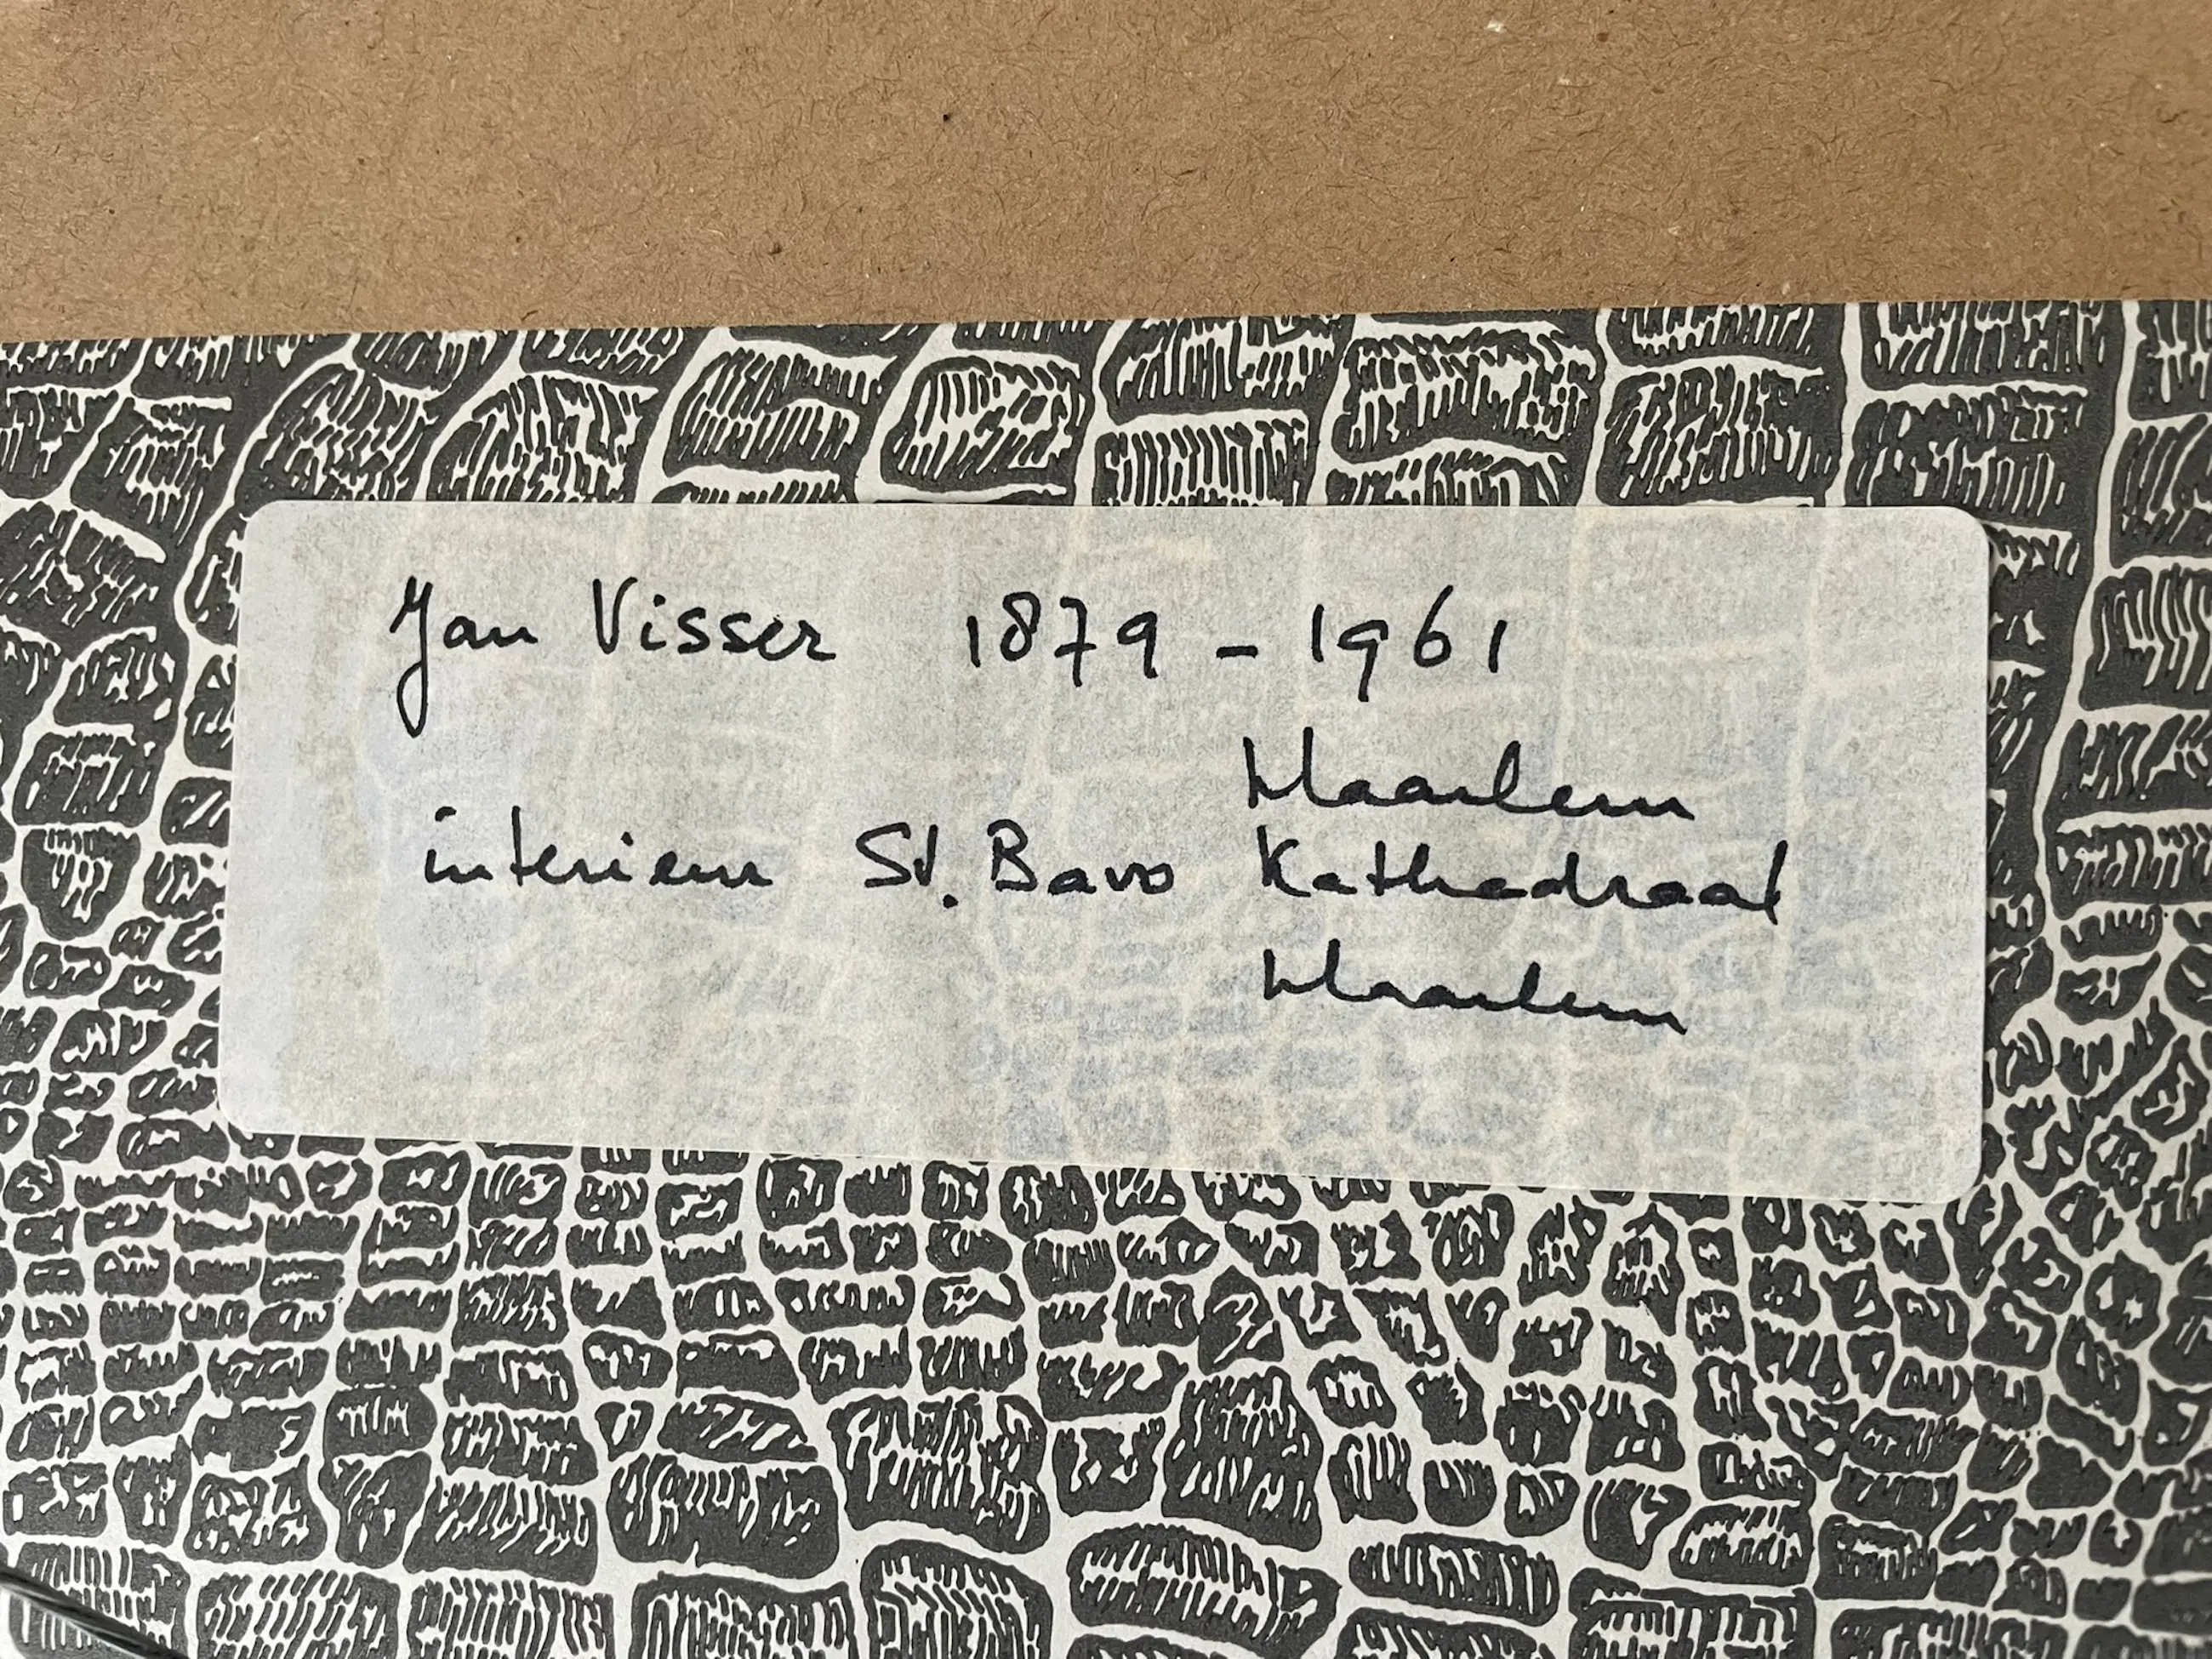 Jan Visser 1879 - 1961
Haarlem
interieur St. Bavo Kathedraal
Haarlem